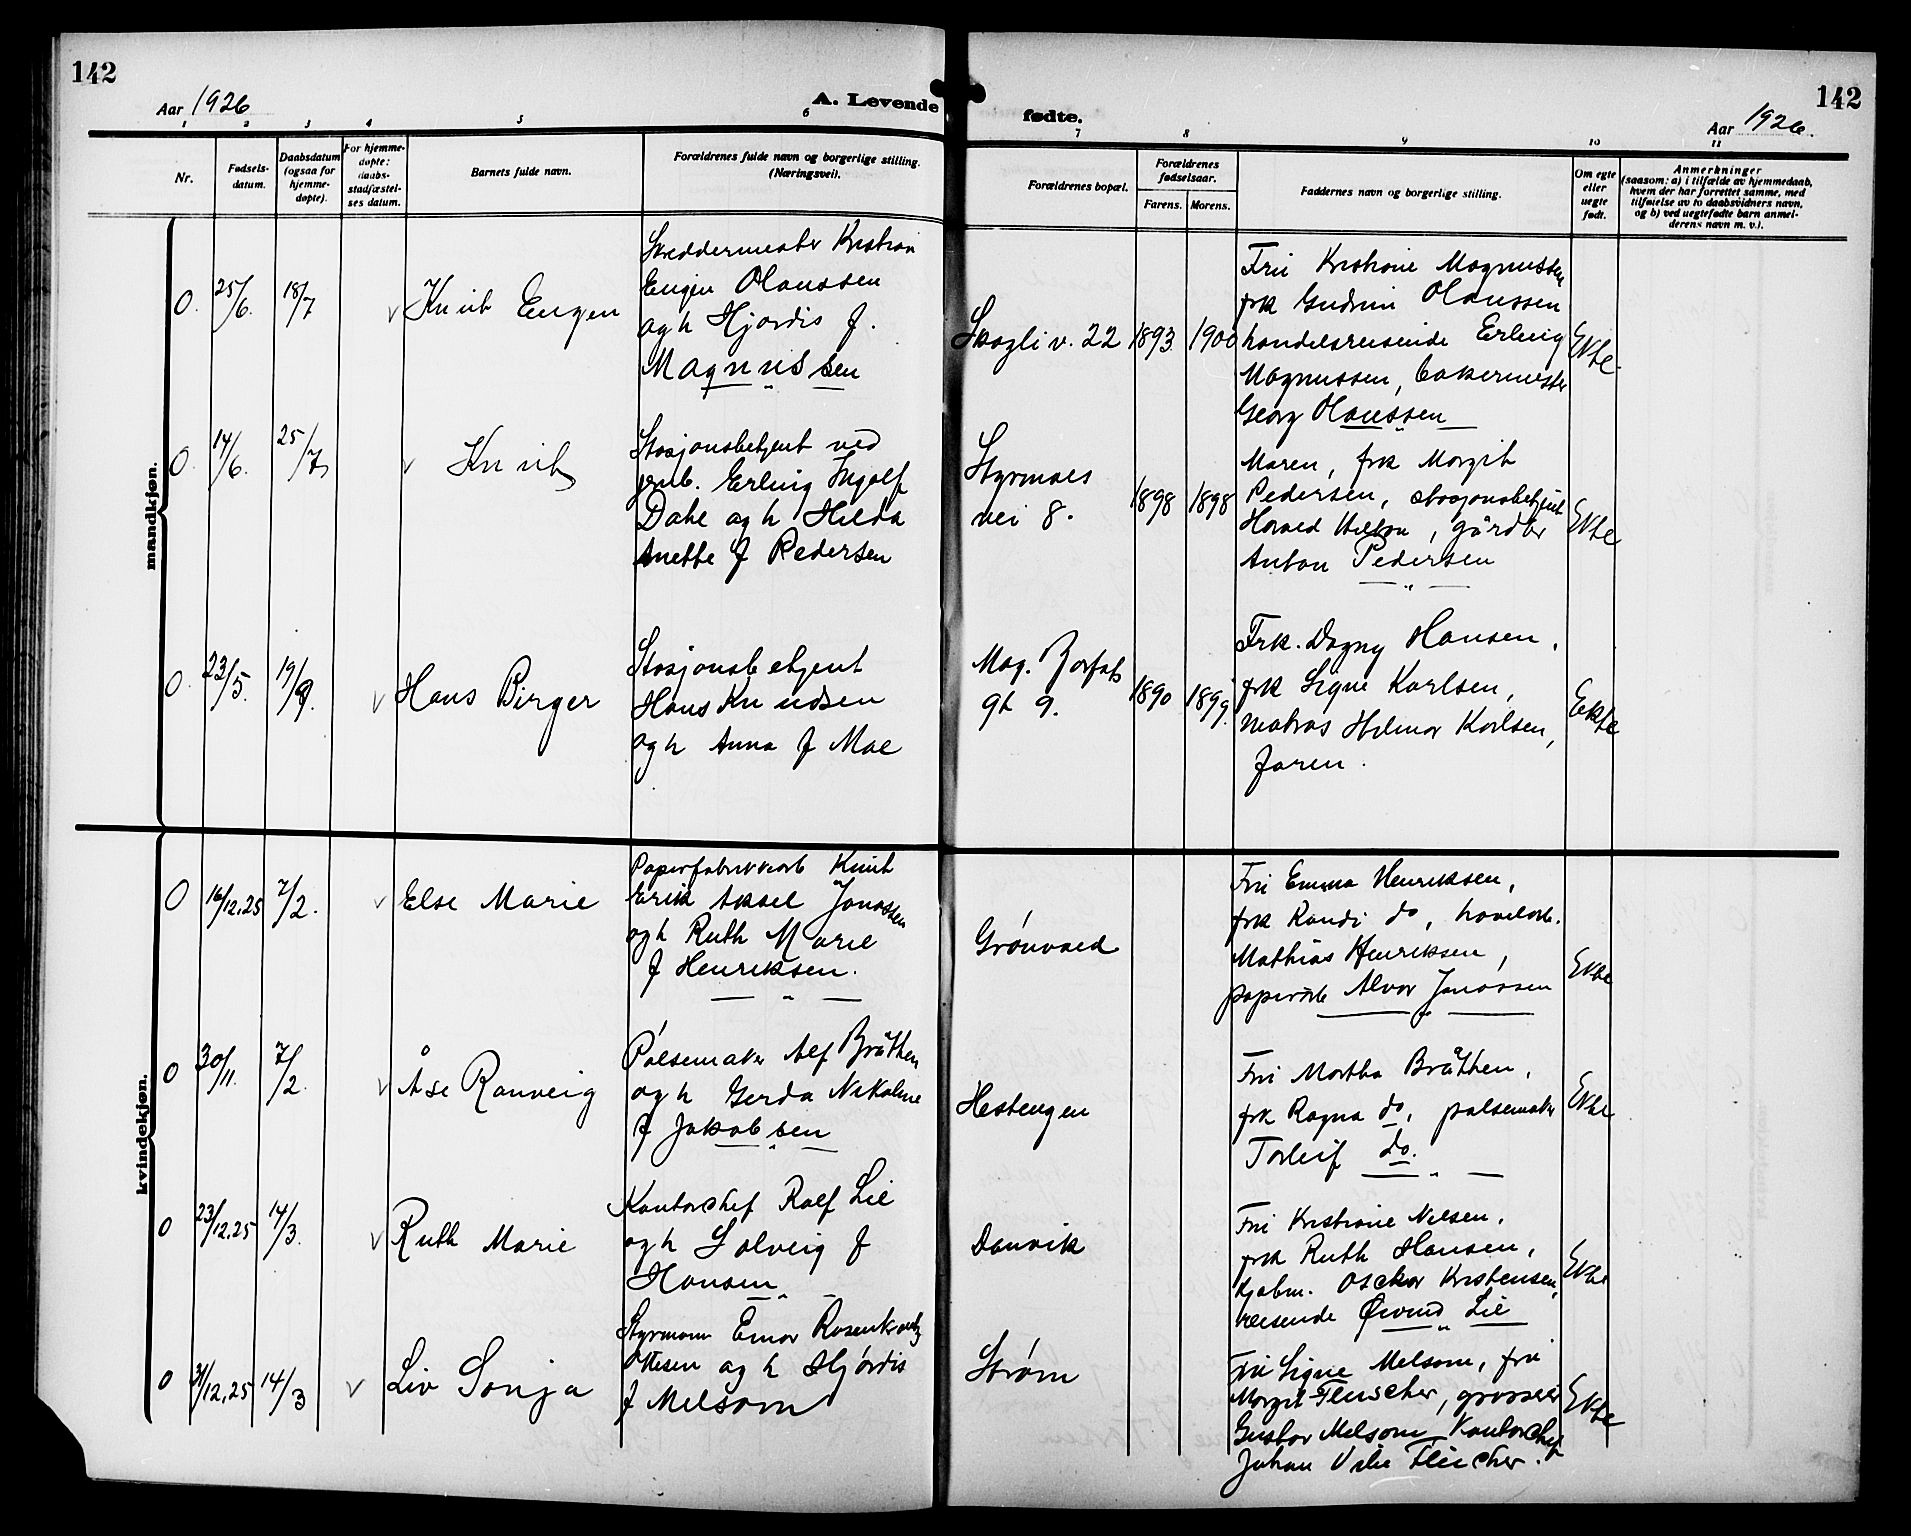 142
142
Aar 1926
A. Levende fødte.
Aar 1926.
1 2 3 4 5 6 7 8 9 10 11
Nr.
Fødsels-
datum.
Daabsdatum
(ogsaa for
hjemme-
døpte).
For hjemme-
døpte:
daabs-
stadfæstel-
ses datum.
Barnets fulde navn.
Forældrenes fulde navn og borgerlige stilling.
(Næringsvei).
Forældrenes bopæl.
Forældrenes
fødselsaar.
Farens. Morens.
Faddernes navn og borgerlige stilling.
Om egte
eller
uegte
født.
Anmerkninger
(saasom: a) i tilfælde av hjemmedaab,
hvem der har forrettet samme, med
tilføielse av to daabsvidners navn,
og b) ved uegtefødte barn anmel-
derens navn m. v.).
mandkjøn.
0. 25/6. 18/7 v Knut Eugen
Skreddermester Kristian
Eugen Olaussen
og h Hjørdis f.
Magnussen
Skogli v. 22 1893. 1900
Fru Kristiane Magnussen
frk Gudrun Olaussen
handelsreisende Erling
Magnussen, bakermester
Georg Olaussen
Ekte.
0. 14/6. 25/7 v Knut
Stasjonsbetjent ved
jernb. Erling Ingolf
Dahl og h Hilda
Anette f Pedersen
Styrmoes
vei 8. 1898 1898
Moren, frk Margit
Pedersen, stasjonsbetjent
Anton Pedersen
Ekte
0. 23/5. 19/9. v Hans Birger
Stasjonsbetjent
Hans Knudsen
og h Anna f Moe
gt 9. 1890 1899.
Frk. Dagny Hansen,
frk Signe Karlsen,
matros Hilmar Karlsen,
faren.
Eekte
kvindekjøn.
0 16/12.25 7/2. v Else Marie
Papirfabrikkarb Knut
Erik Aksel Jonassen
og h Ruth Marie
f Henriksen.
Grønvold
Fru Emma Henriksen,
frk Randi do,
Mathias Henriksen,
papirarb Alvar Jonassen
Ekte
0 30/11. 7/2. v Åse Ranveig
Pølsemaker Alf Bråthen
og h Gerda Nikoline
f Jakobsen
Hestengen
Fru Martha Bråthen,
frk Ragna do, pølsemaker
Torleif do.
Ekte
0 23/12.25 14/3. v Ruth Marie
Kontorchef Rolf Lie
og h Solveig f
Hansen
Danvik
Fru Kristiane Nilsen,
frk Ruth Hansen,
kjøbm. Osckar Kristensen,
reisende Øivind Lie
Ekte
0 31/12.25 14/3 v Liv Sonja
Styrmann Einar Rosenkrantz
Ottesen og h Hjørdis
f Melsom
Strøm
Fru Signe Melsom, fru
Margit Fleischer, grosserer
Gustav Melsom, Kontorchef
Johan Fleicher.
Ekte